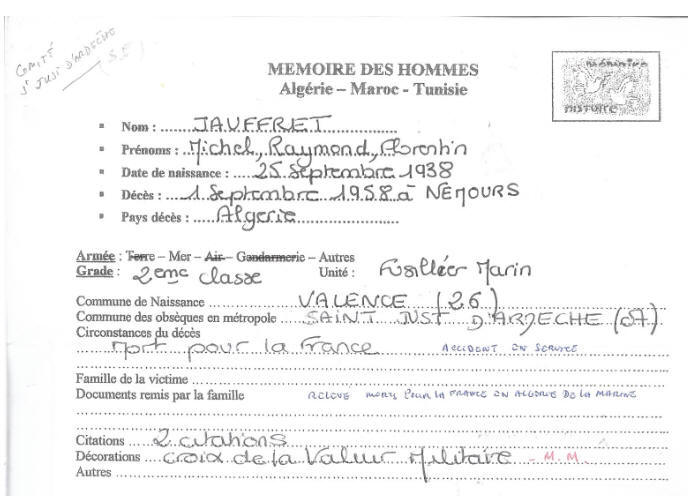 COMITÉ
St JUST D'ARDÈCHE
(S.E)
MEMOIRE DES HOMMES
Algérie – Maroc - Tunisie
HISTOIRE
▪ Nom : JAUFFRET
▪ Prénoms : Michel, Raymond, Florentin
▪ Date de naissance : 25 Septembre 1938
▪ Décès : 1 Septembre 1958 à NEMOURS
▪ Pays décès : Algerie
Armée : Terre – Mer – Air – Gendarmerie – Autres
Grade : 2eme classe Unité : Fusillier Marin
Commune de Naissance VALENCE (26)
Commune des obsèques en métropole SAINT JUST D'ARDECHE (07)
Circonstances du décès
Mort pour la France ACCIDENT EN SERVICE
Famille de la victime
Documents remis par la famille RELEVE MORTS POUR LA FRANCE EN ALGERIE DE LA MARINE
Citations 2 citations
Décorations croix de la Valeur Militaire - M.M.
Autres